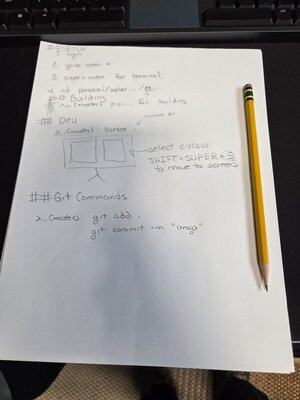 ## SETUP
1. login
2. go to screen
3. super + enter for terminal
4. cd personal/usher.../
## Building
>..(master) pio... for building
## Dev
>..(master) cursor
select cursor
SHIFT + SUPER + 3
to move to screen
## Git Commands
>..(master) git add .
git commit -m "<msg>"